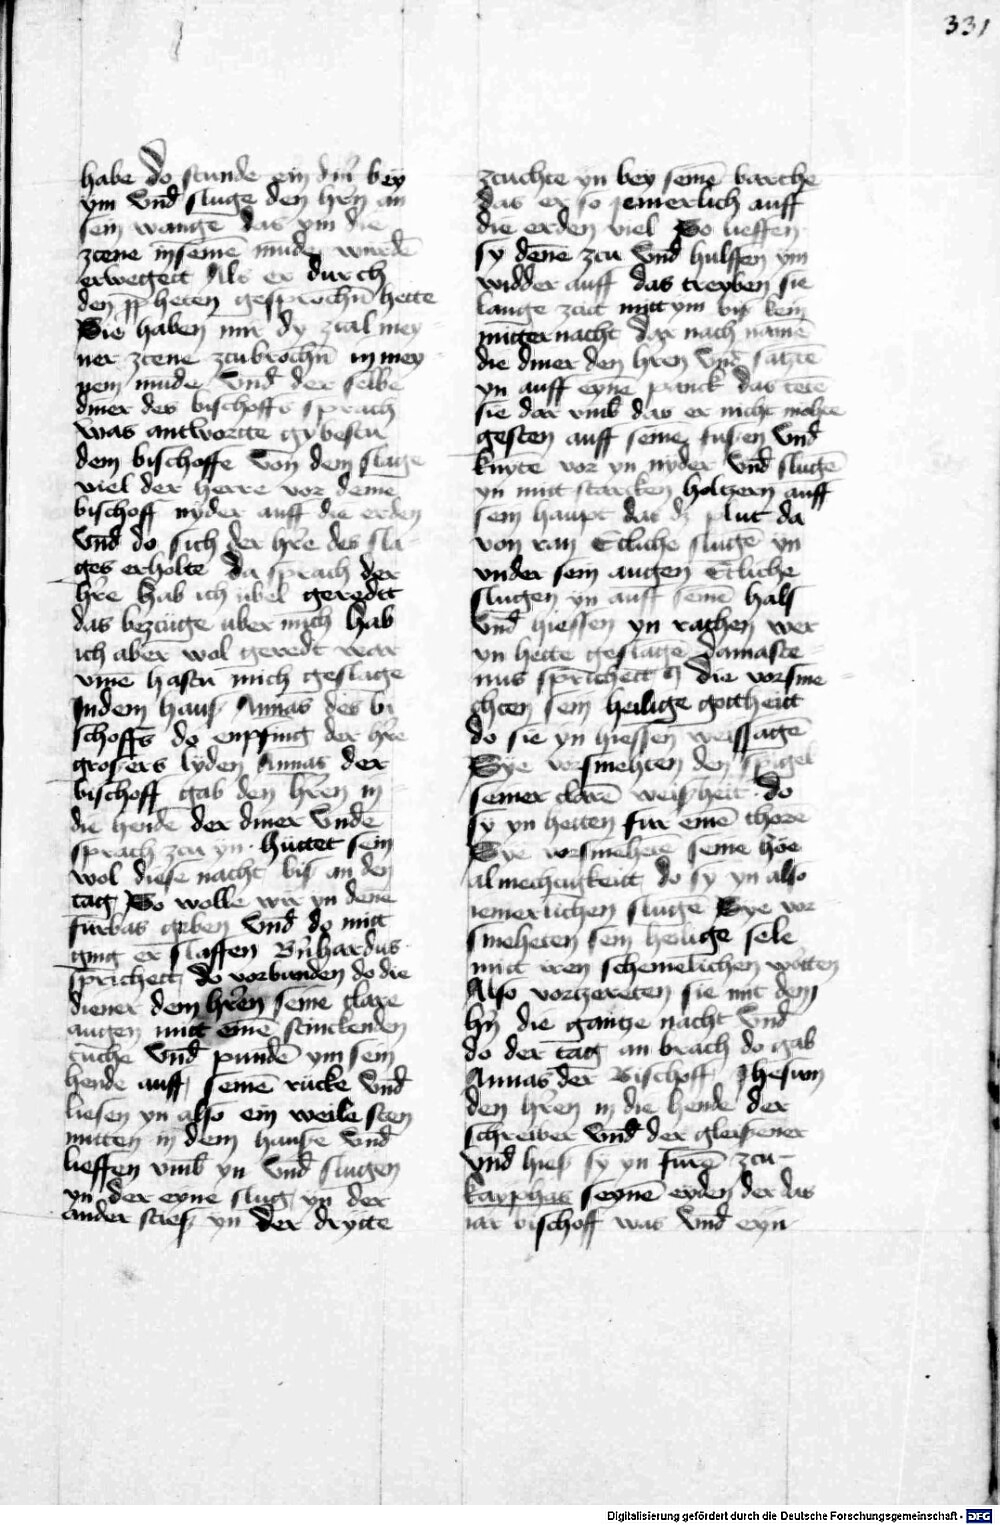 331
habe do stunde ein din̄ bey
ym vnd̄ sluge den hrn̄ an
sein wangē das ym die
zcene in seinē mude wurdē
erwegett Als er durch
den ꝓpheten gesprochn̄ hette
Sie haben mir dy zcal mey
ner zcene zcubrochn̄ in mey
nem mude vnd̄ der selbe
diner des bischoffs sprach
was antwortte gybestu
dem bischoffe von dem slage
viel der herre vor deme
bischoff nyder auff die erden
vnd̄ do sich der hr̄e des sla
ges erholte da sprach der
hr̄e hab ich vbel geredtt
das bezcuge vber mich hab
ich aber wol geredt war
vme hastu mich geslage
In dem haus Annas des bi
schoffs do enpfing der hr̄e
grosers lyden Annas der
bischoff gab den hr̄en in
die hende der diner vnde
sprach zcu yn huttet sein
wol diese nacht bis an den
tag So wolle wir yn dene
furbas geben vnd̄ do mitt
ging er slaffen Bn̄hardus
sprichett do vorbunden do die
diener dem hr̄en seine clare
augen mitt eine stinckenden
tuche vnd̄ pundē ym sein
hende auff seinē rucke vnd̄
liesen yn also ein weile sten
mitten in dem hause vnd̄
lieffen vmb̄ yn vnd̄ slugen
yn der eyne slug yn der
ander sties yn der drytte
zcuchte yn bey seinē barthe
das er so iemerlich auff
die erden viel So lieffen
sy dene zcu vnd̄ hulffen ym
widder auff das treyben sie
lange zcitt mitt ym bis kein
mitternacht dar nach namē
die diner den hren vnd̄ satztē
yn auff eynē panck das tetē
sie dar vmb̄ das er nicht mohte
gesten auff seinē fusen vnd̄
knytē vor yn nyder vnd̄ slugē
yn mitt starcken holtzern auff
sein haupt das dz plut da
von ran Ettliche slugē yn
vnder sein augen Etliche
slugen yn auff seinē hals
vnd̄ hiessen yn rathen wer
yn hette geslagē Damaste
nus sprichett die vorsme
chten sein heilige gottheitt
do sie yn hiessen weissagē
Sye vorsmehten den spigel
seiner clarē weisheit do
sy yn hetten fur einē thorē
Sye vorsmehete seine hoe
almechtigkeitt do sy yn also
iemerlichen slugē Sye vor
smeheten sein heilige sele
mitt iren schemelichen wortten
Also vortzereten sie mit dem
hn̄ die gantze nacht vnd̄
do der tag an brach do gab
Annas der Bischoff Jhesum
den hr̄en in die hende der
schreiber vnd̄ der gleisener
vnd̄ hies sy yn furē zcu
kayphas seynē eyden der das
iar bischoff was vnd̄ eyn
Digitalisierung gefördert durch die Deutsche Forschungsgemeinschaft - DFG